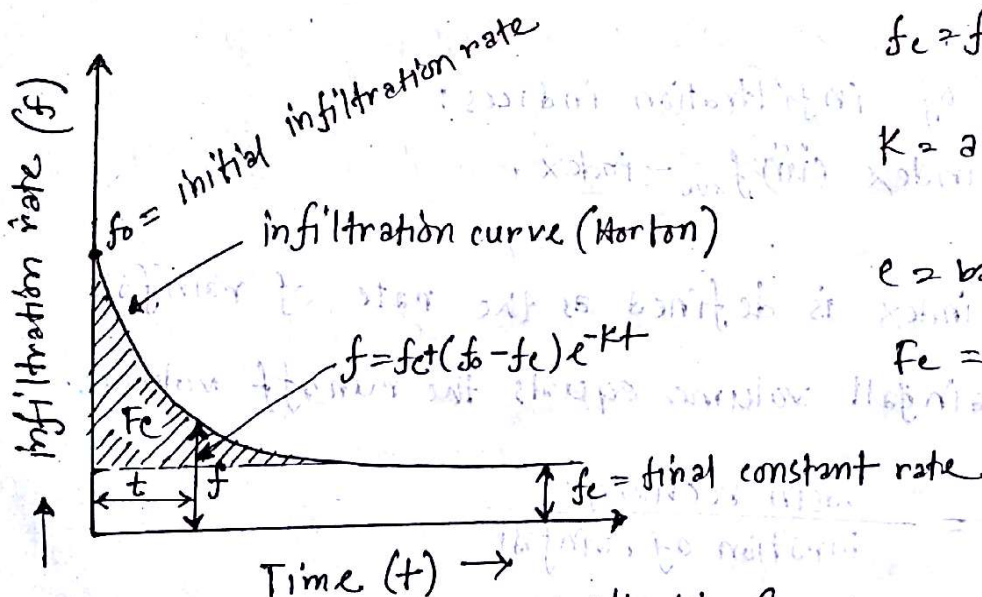 fc = f
K = a
e = b
Fc =
Infiltration rate (f)
fo = initial infiltration rate
infiltration curve (Horton)
f = fc+(fo-fc)e-Kt
Fc
t
f
fc = final constant rate
Time (t) →